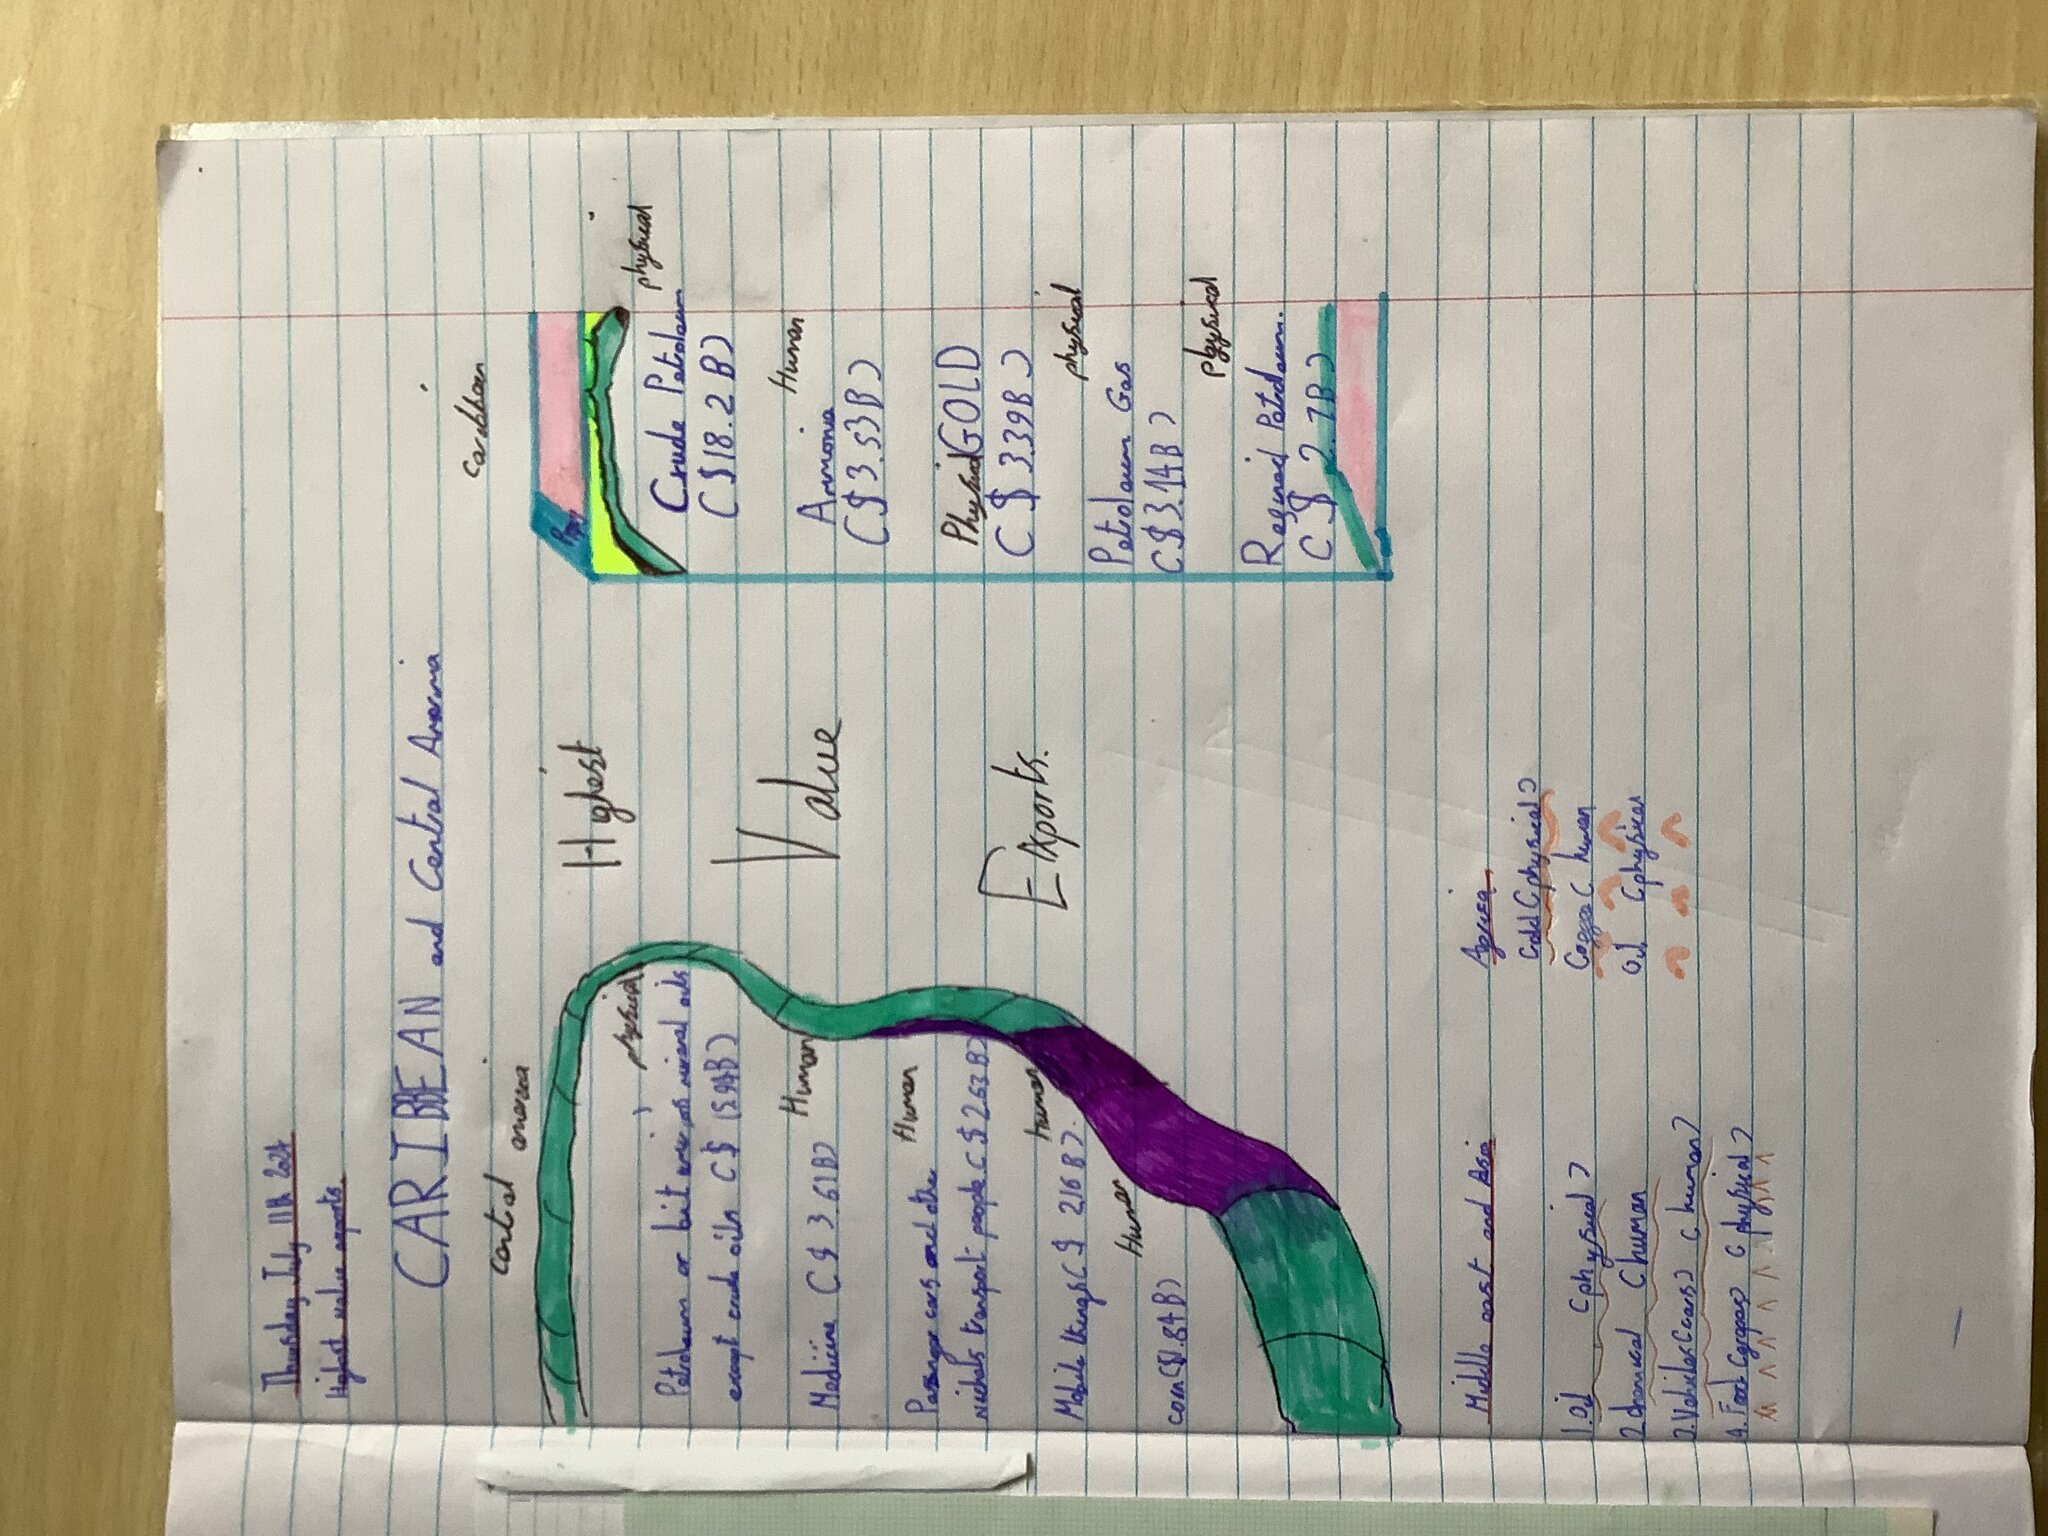 Thursday July 11th 2024
Highest value exports.
CARIBBEAN and Central America
Central america
physical
Petroleum or mineral oils
except crude oils C$
Human
Medicine C$ 3.61B)
Human
Passenger cars and other
transport people C$ 2.63B)
Human
Mobile things C$ 2.16 B)
Human
corn ($1.84B)
Highest
Value
Exports.
Caribbean
physical
Crude Petroleum
C$18.2 B)
Human
Ammonia
C$3.53B)
Physical GOLD
C$ 3.39B)
physical
Petroleum Gas
C$3.14B)
physical
Refined Petroleum.
C$ 2.7B)
Middle east and Asia
1. Oil (physical)
2. chemical (human
3. Vehicles (cars) (human)
4. Food (grapes) (physical)
Africa
Gold (physical)
Coffee ( human
Oil (physical